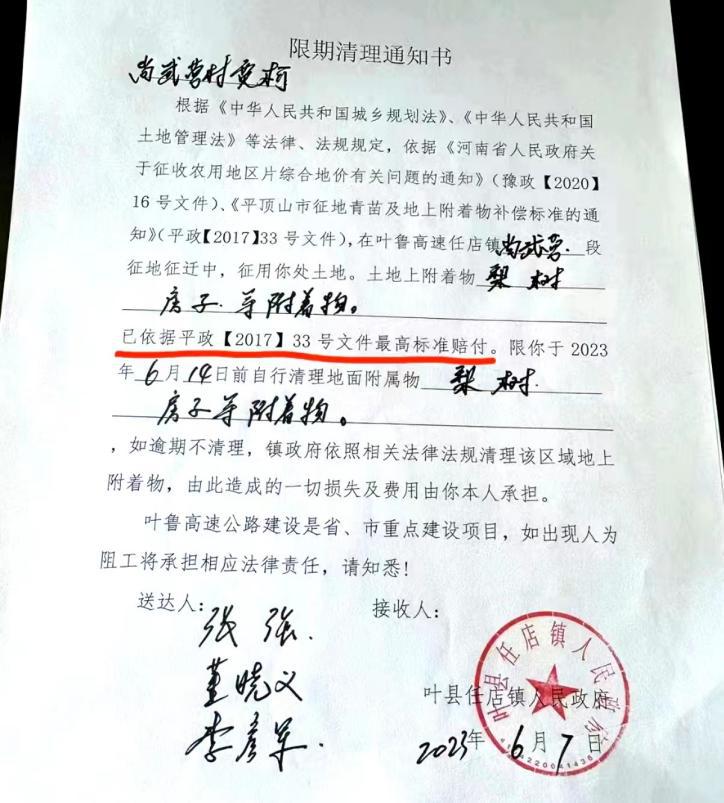 限期清理通知书
尚武营村贾柯
根据《中华人民共和国城乡规划法》、《中华人民共和国
土地管理法》等法律、法规规定，依据《河南省人民政府关
于征收农用地区片综合地价有关问题的通知》（豫政【2020】
16号文件）、《平顶山市征地青苗及地上附着物补偿标准的通
知》（平政【2017】33号文件），在叶鲁高速任店镇尚武营.段
征地征迁中，征用你处土地。土地上附着物梨树
房子.等附着物。
已依据平政【2017】33号文件最高标准赔付。限你于2023
年6月14日前自行清理地面附属物梨树.
房子等附着物。
，如逾期不清理，镇政府依照相关法律法规清理该区域地上
附着物，由此造成的一切损失及费用由你本人承担。
叶鲁高速公路建设是省、市重点建设项目，如出现人为
阻工将承担相应法律责任，请知悉！
送达人： 接收人：
张强.
董晓义
李彦军.
叶县任店镇人民政府
2023年6月7日
叶县任店镇人民政府